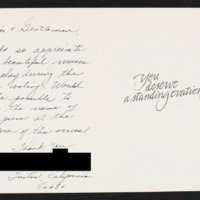 & Gentlemen,
so appreciate
beautiful music
play during the
Would
be possible to
the name of
piece at the
of the second
Thank You,
Tustin, California
92680
You
deserve
a standing ovation